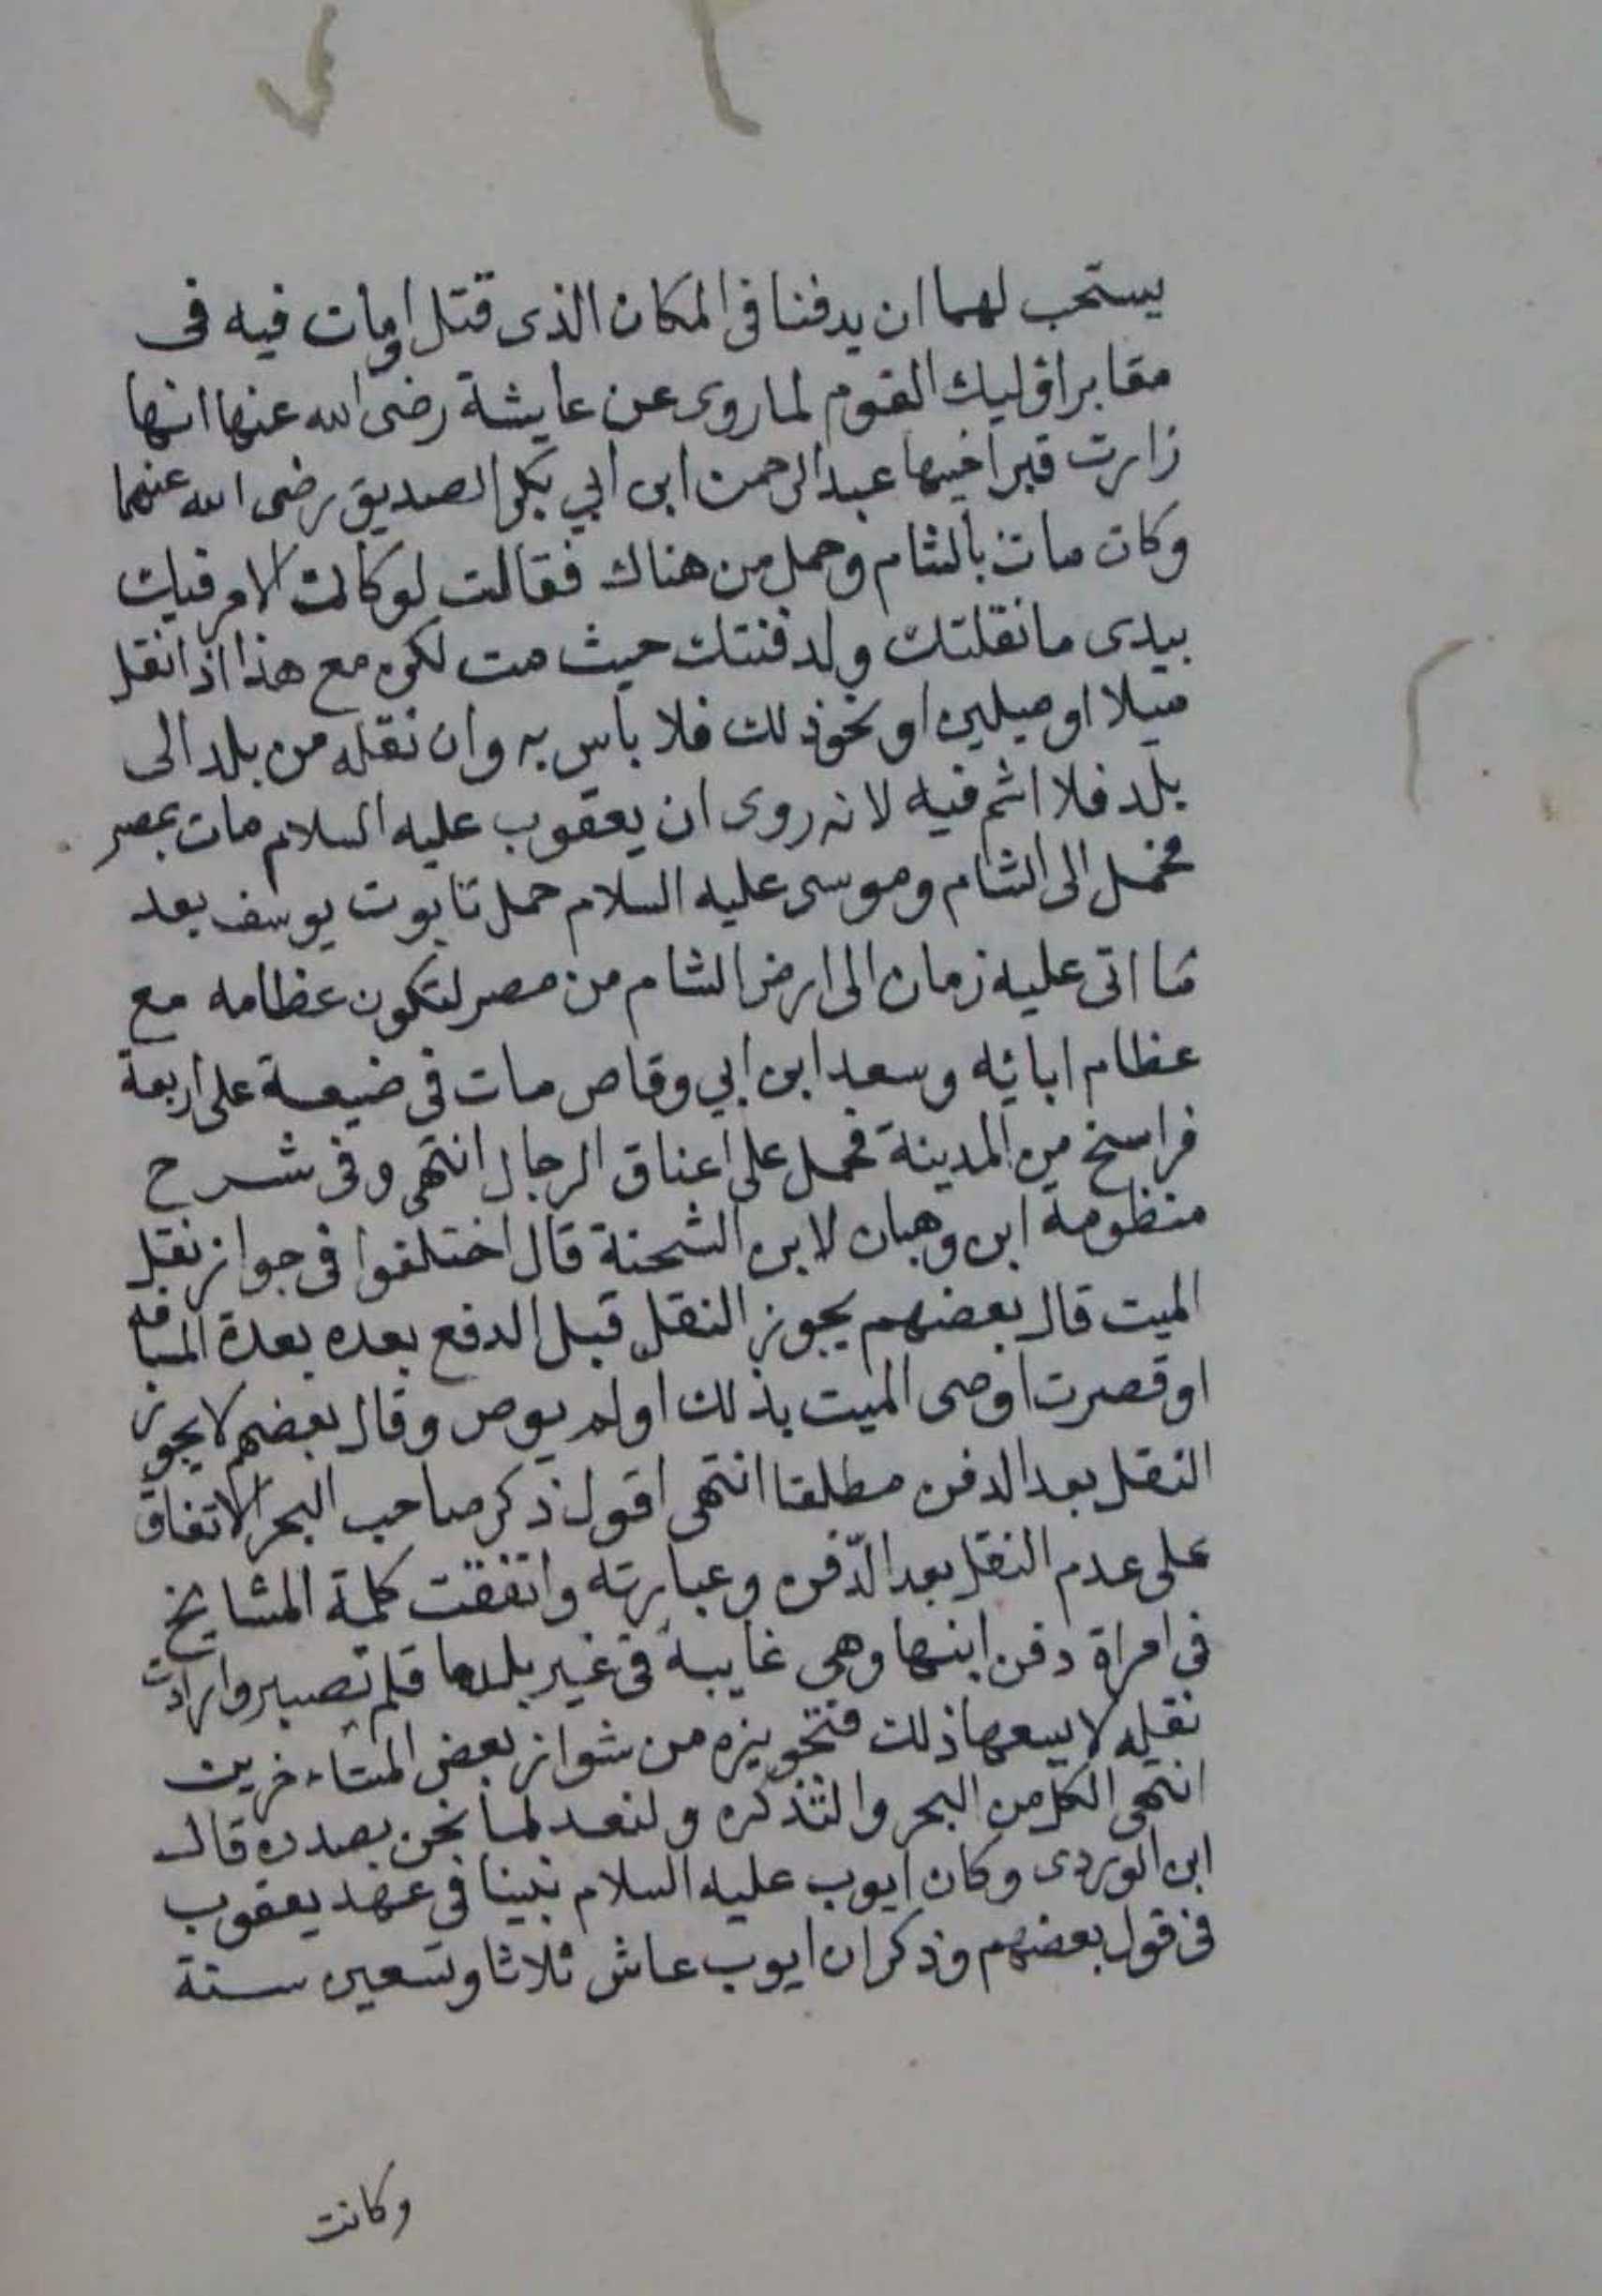 يستحب لهما ان يدفنا فى المكان الذى قتل او مات فيه فى
مقابر اوليك القوم لما روى عن عايشة رضى الله عنها انها
زارت قبر اخيها عبد الرحمن ابن ابي بكر الصديق رضى الله عنهما
وكان مات بالشام وحمل من هناك فقالت لو كان الامر فيك
بيدى ما نقلتك ولدفنتك حيث مت لكن مع هذا اذا نقل
ميلا او ميلين او نحو ذلك فلا باس به وان نقله من بلد الى
بلد فلا اثم فيه لانه روى ان يعقوب عليه السلام مات بمصر
فحمل الى الشام وموسى عليه السلام حمل تابوت يوسف بعد
ما اتى عليه زمان الى ارض الشام من مصر لتكون عظامه مع
عظام ابائه وسعد ابن ابي وقاص مات فى ضيعة على اربعة
فراسخ من المدينة فحمل على اعناق الرجال انتهى وفى شرح
منظومة ابن وهبان لابن الشحنة قال اختلفوا فى جواز نقل
الميت قال بعضهم يجوز النقل قبل الدفع بعده بعدة المسافة
او قصرت اوصى الميت بذلك او لم يوص وقال بعضهم لا يجوز
النقل بعد الدفن مطلقا انتهى اقول ذكر صاحب البحر الاتفاق
على عدم النقل بعد الدّفن وعبارته واتفقت كلمة المشايخ
فى امراة دفن ابنها وهى غايبة فى غير بلدها فلم تصبر وارادت
نقله لا يسعها ذلك فتجويزه من شواز بعض المتاءخرين
انتهى الكل من البحر والتذكره ولنعد لما نحن بصدده قال
ابن الوردى وكان ايوب عليه السلام نبينا فى عهد يعقوب
فى قول بعضهم وذكر ان ايوب عاش ثلاثا وتسعين سنة
وكانت